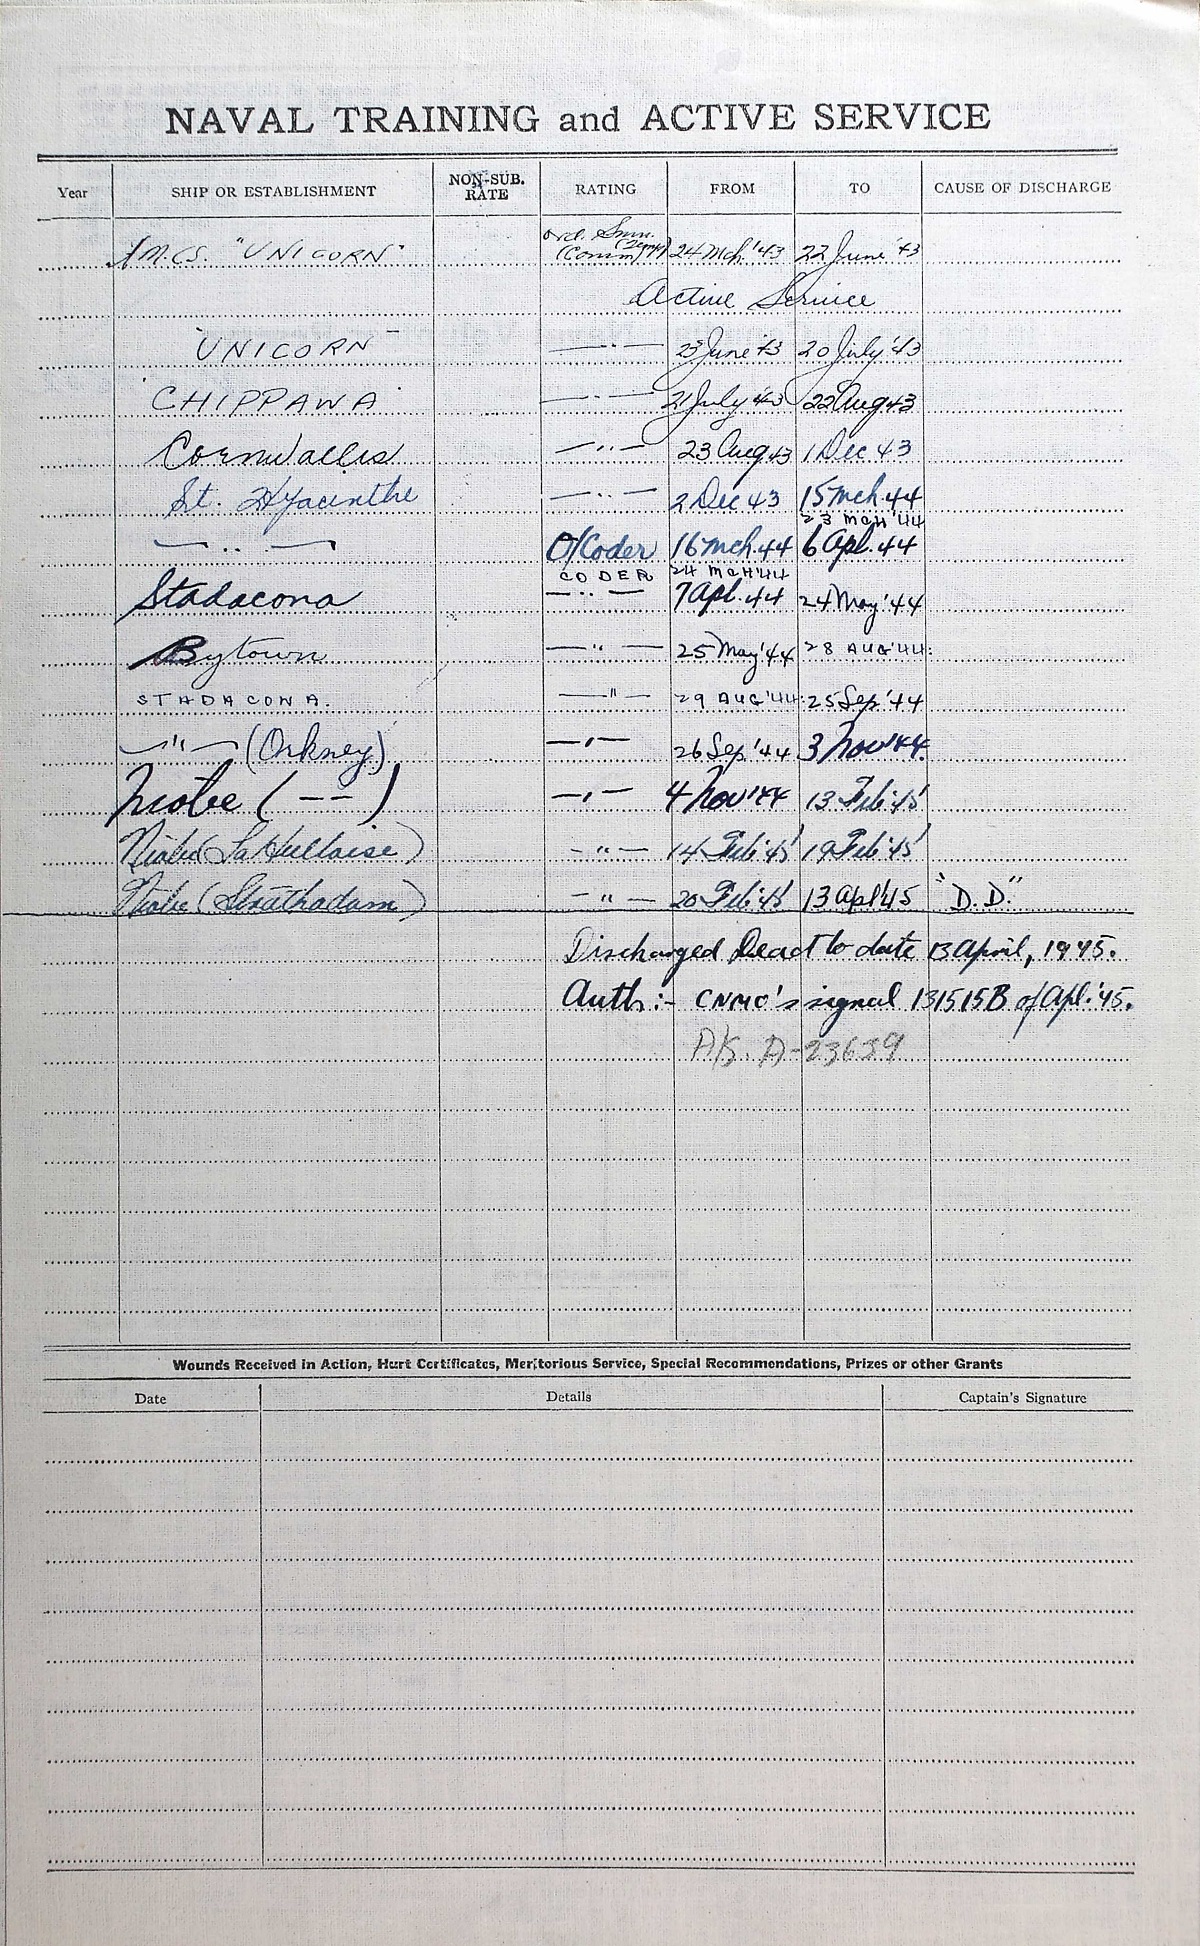 NAVAL TRAINING and ACTIVE SERVICE
Year SHIP OR ESTABLISHMENT NON-SUB. RATE RATING FROM TO CAUSE OF DISCHARGE
H.M.C.S. "UNICORN" Ord. Smn. (Comm) (Temp) 24 Mch '43 22 June '43
Active Service
"UNICORN" —"— 23 June '43 20 July '43
CHIPPAWA —"— 21 July '43 22 Aug 43
Cornwallis —"— 23 Aug 43 1 Dec 43
St. Hyacinthe —"— 2 Dec 43 15 mch. 44
23 MCH '44
—"— O/Coder 16 mch. 44 6 Apl. 44
CODER 24 MCH '44
Stadacona —"— 7 Apl. 44 24 May '44
Bytown —"— 25 May '44 28 AUG '44:
STADACONA. —"— 29 AUG '44: 25 Sep '44
—"— (Orkney) —"— 26 Sep '44 3 Nov '44.
Niobe ( -- ) —"— 4 Nov '44 13 Feb '45
Niobe (La Hulloise) —"— 14 Feb '45 19 Feb '45
Niobe (Strathadam) —"— 20 Feb '45 13 Apl '45 "D.D."
Discharged Dead to date 13 April, 1945.
Auth:- CNMO's signal 131515B of Apl. '45.
A/S. A-23659
Wounds Received in Action, Hurt Certificates, Meritorious Service, Special Recommendations, Prizes or other Grants
Date Details Captain's Signature